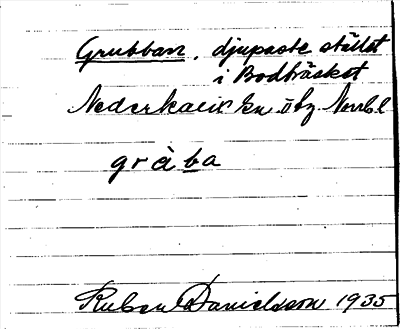 Grubban, djupaste stället
i Bodträsket
Nederkalix sn. öbg. Norrb. l
gràba
Ruben Danielsson 1935